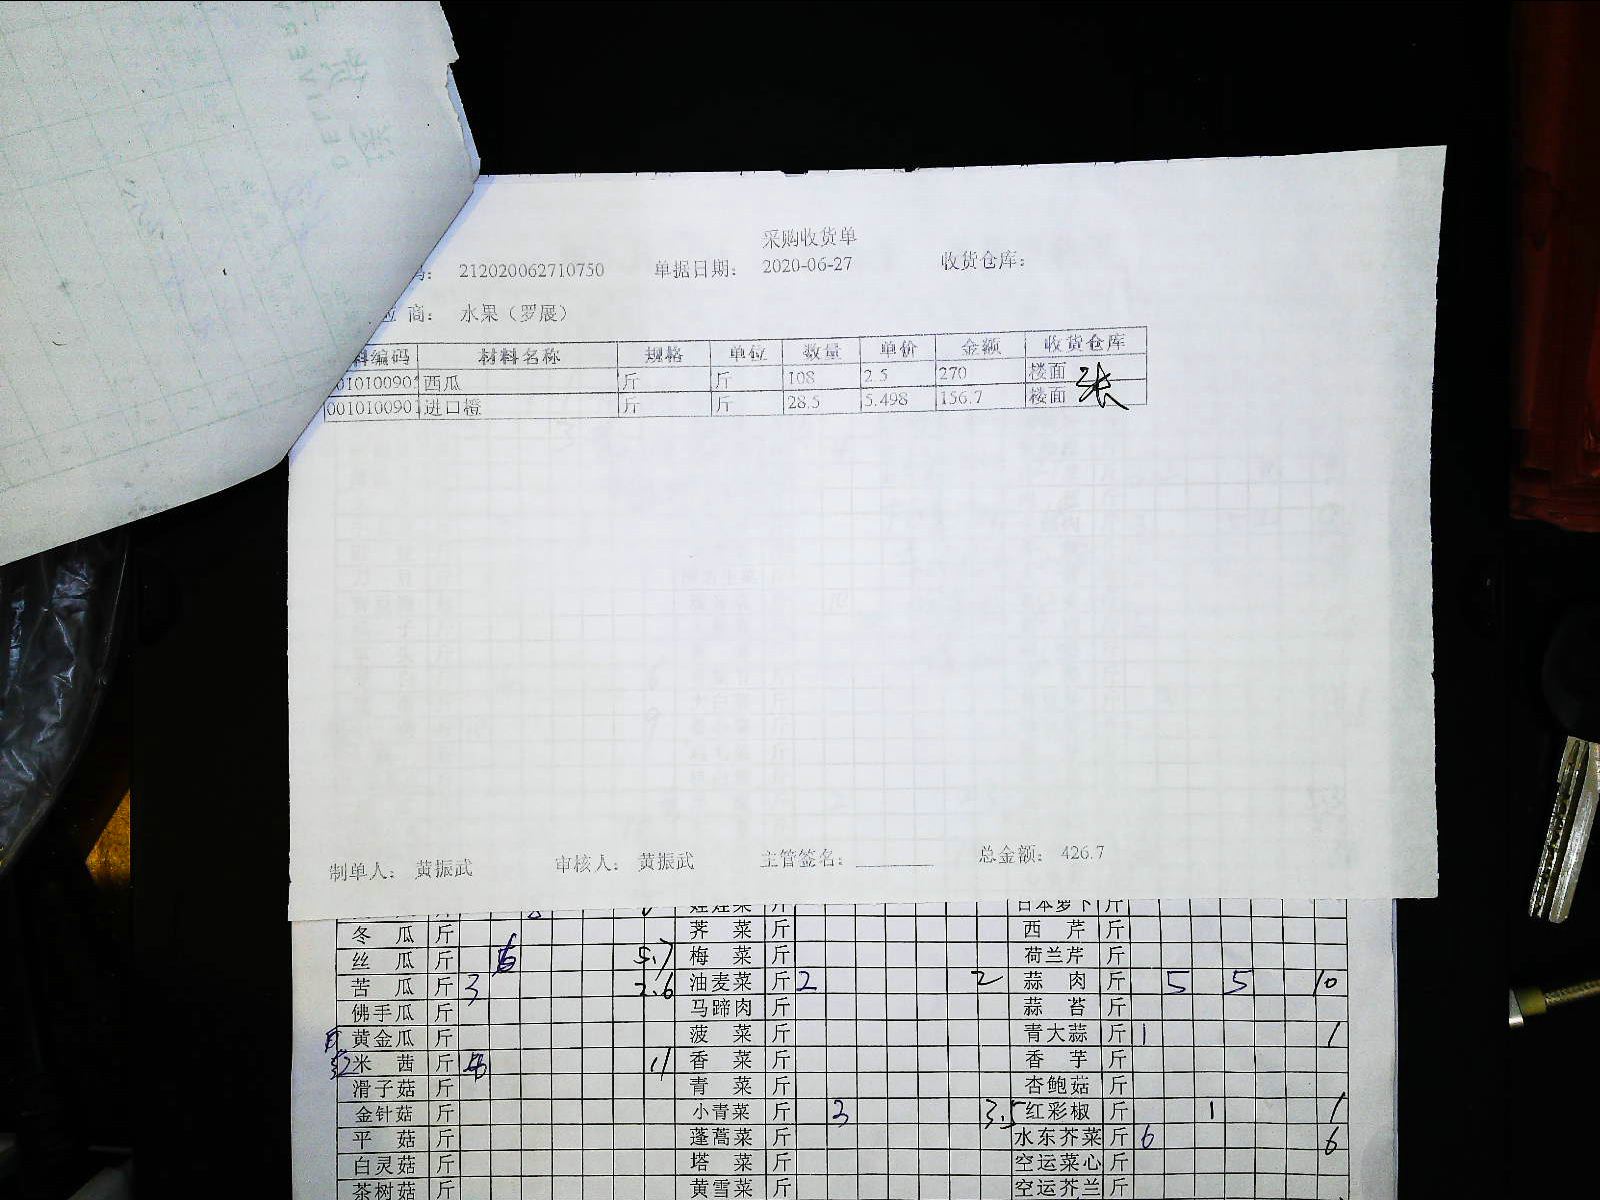 采购收货单
码： 212020062710750 单据日期： 2020-06-27 收货仓库：
应 商： 水果（罗展）
料编码 材料名称 规格 单位 数量 单价 金额 收货仓库
0010100901 西瓜 斤 斤 108 2.5 270 楼面
001010090 进口橙 斤 斤 28.5 5.498 156.7 楼面
制单人： 黄振武 审核人： 黄振武 主管签名： 总金额： 426.7
娃娃菜 斤 日本萝卜 斤
冬 瓜 斤 荠 菜 斤 西 芹 斤
丝 瓜 斤 6 5.7 梅 菜 斤 荷兰芹 斤
苦 瓜 斤 3 2.6 油麦菜 斤 2 2 蒜 肉 斤 5 5 10
佛手瓜 斤 马蹄肉 斤 蒜 苔 斤
黄金瓜 斤 菠 菜 斤 青大蒜 斤 1 1
米 茜 斤 11 香 菜 斤 香 芋 斤
滑子菇 斤 青 菜 斤 杏鲍菇 斤
金针菇 斤 小青菜 斤 3 3.5 红彩椒 斤 1 1
平 菇 斤 蓬蒿菜 斤 水东芥菜 斤 6 6
白灵菇 斤 塔 菜 斤 空运菜心 斤
茶树菇 斤 黄雪菜 斤 空运芥兰 斤